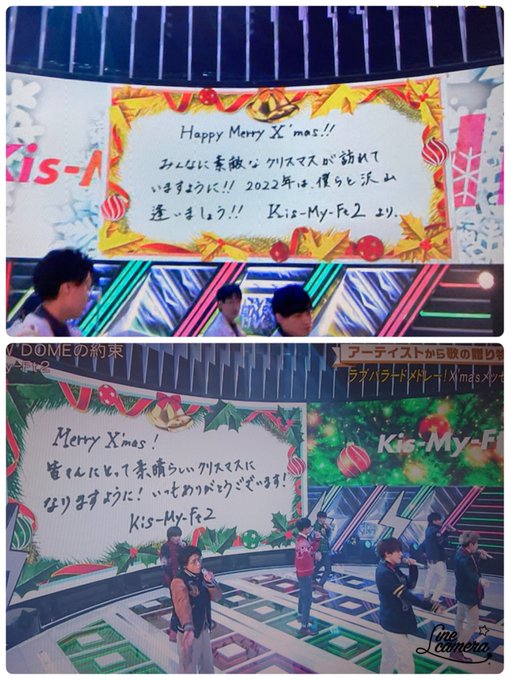 Kis-My
Happy Merry X'mas!!
みんなに素敵なクリスマスが訪れて
いますように!! 2022年は、僕らと沢山
逢いましょう!! Kis-My-Ft2 より。
DOMEの約束
y-Ft2
アーティストから歌の贈り物
ラブバラードメドレー!X'masメッセ
Merry X'mas!
皆さんにとって素晴らしいクリスマスに
なりますように! いつもありがとうございます!
Kis-My-Ft2
Kis-My-Ft
Line camera